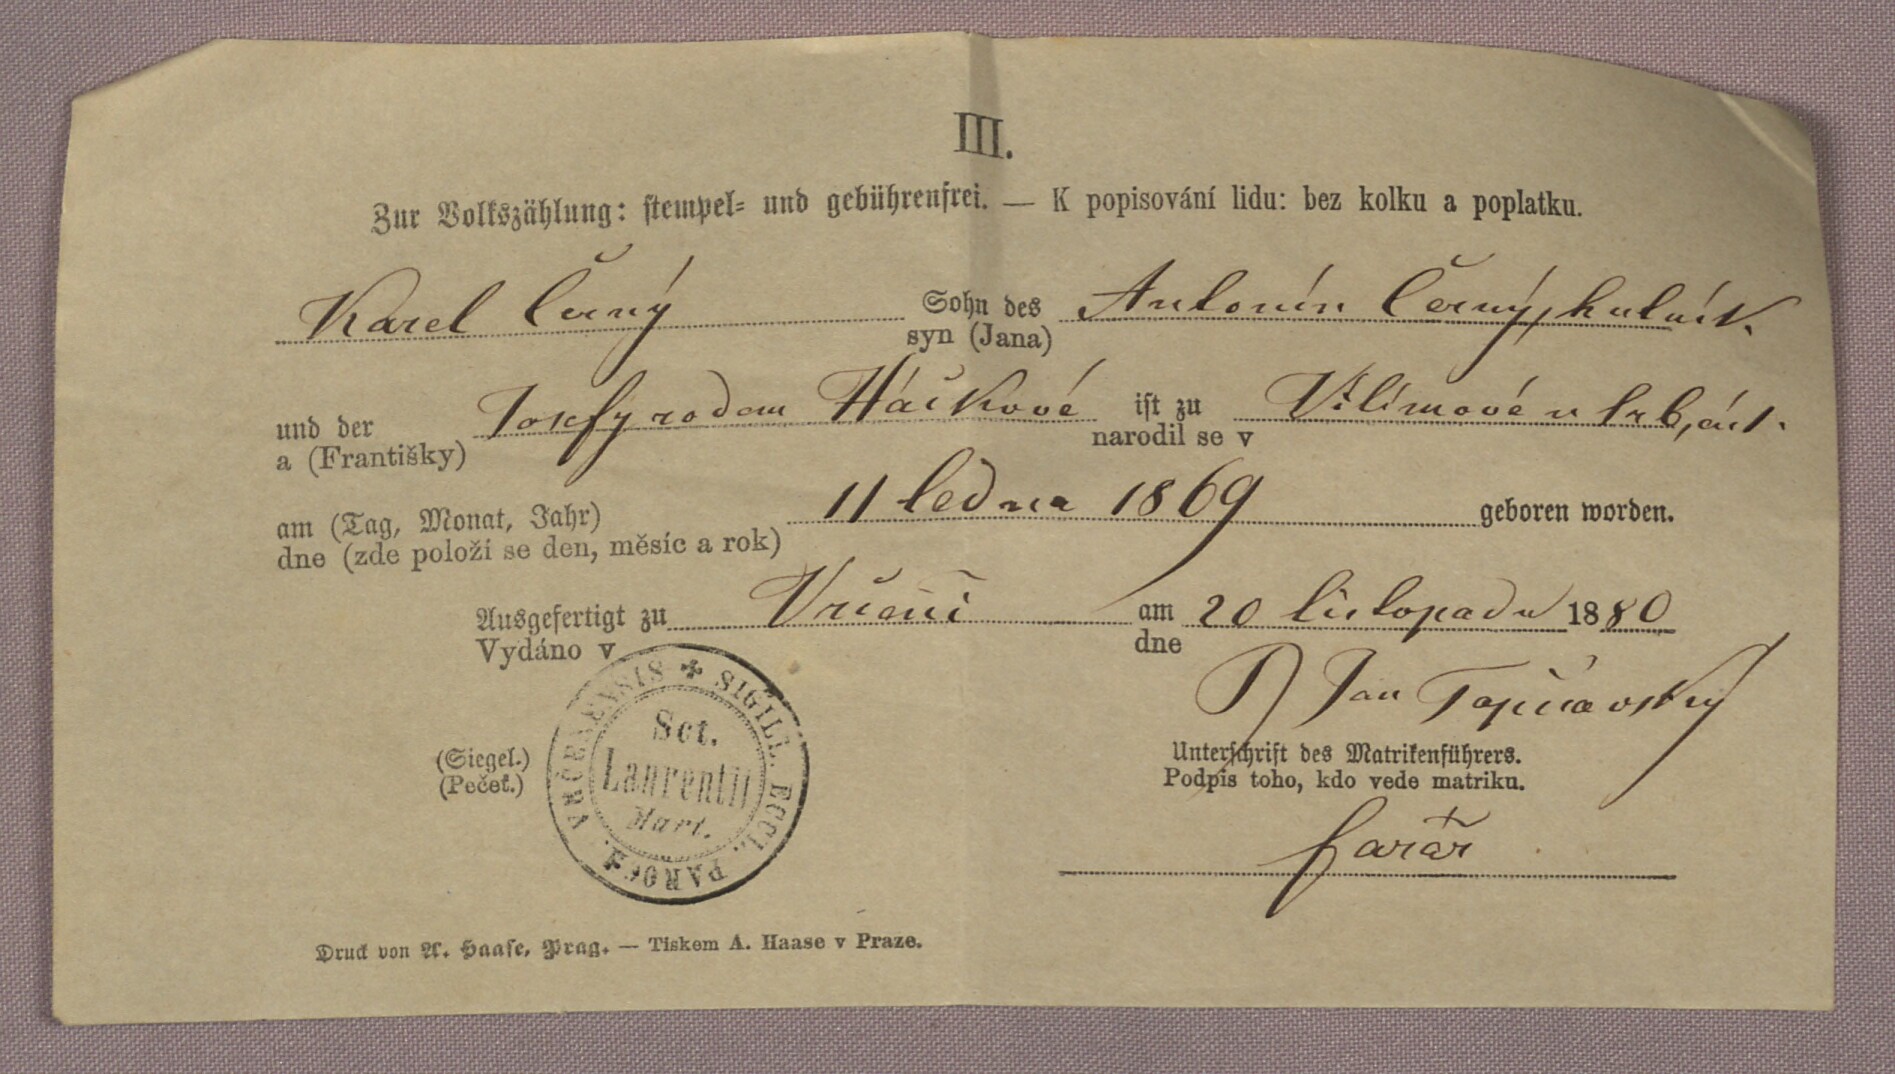 III.
Zur Volkszählung: stempel= und gebührenfrei. — K popisování lidu: bez kolku a poplatku.
Karel Černý Sohn des Antonín Černý,
syn (Jana)
und der Josefy rodem Háčkové ist zu
a (Františky) narodil se v
am (Tag, Monat, Jahr) 11 ledna 1869 geboren worden.
dne (zde položí se den, měsíc a rok)
Ausgefertigt zu Vrčeni am 20 listopadu 1880
Vydáno v dne
P Jan
Unterschrift des Matrikenführers.
Podpis toho, kdo vede matriku.
farář
(Siegel.)
(Pečeť.)
✠ SIGILL. ECCL. PAROCH. VRČENENSIS
Sct.
Laurentii
Mart.
Druck von A. Haase, Prag. — Tiskem A. Haase v Praze.